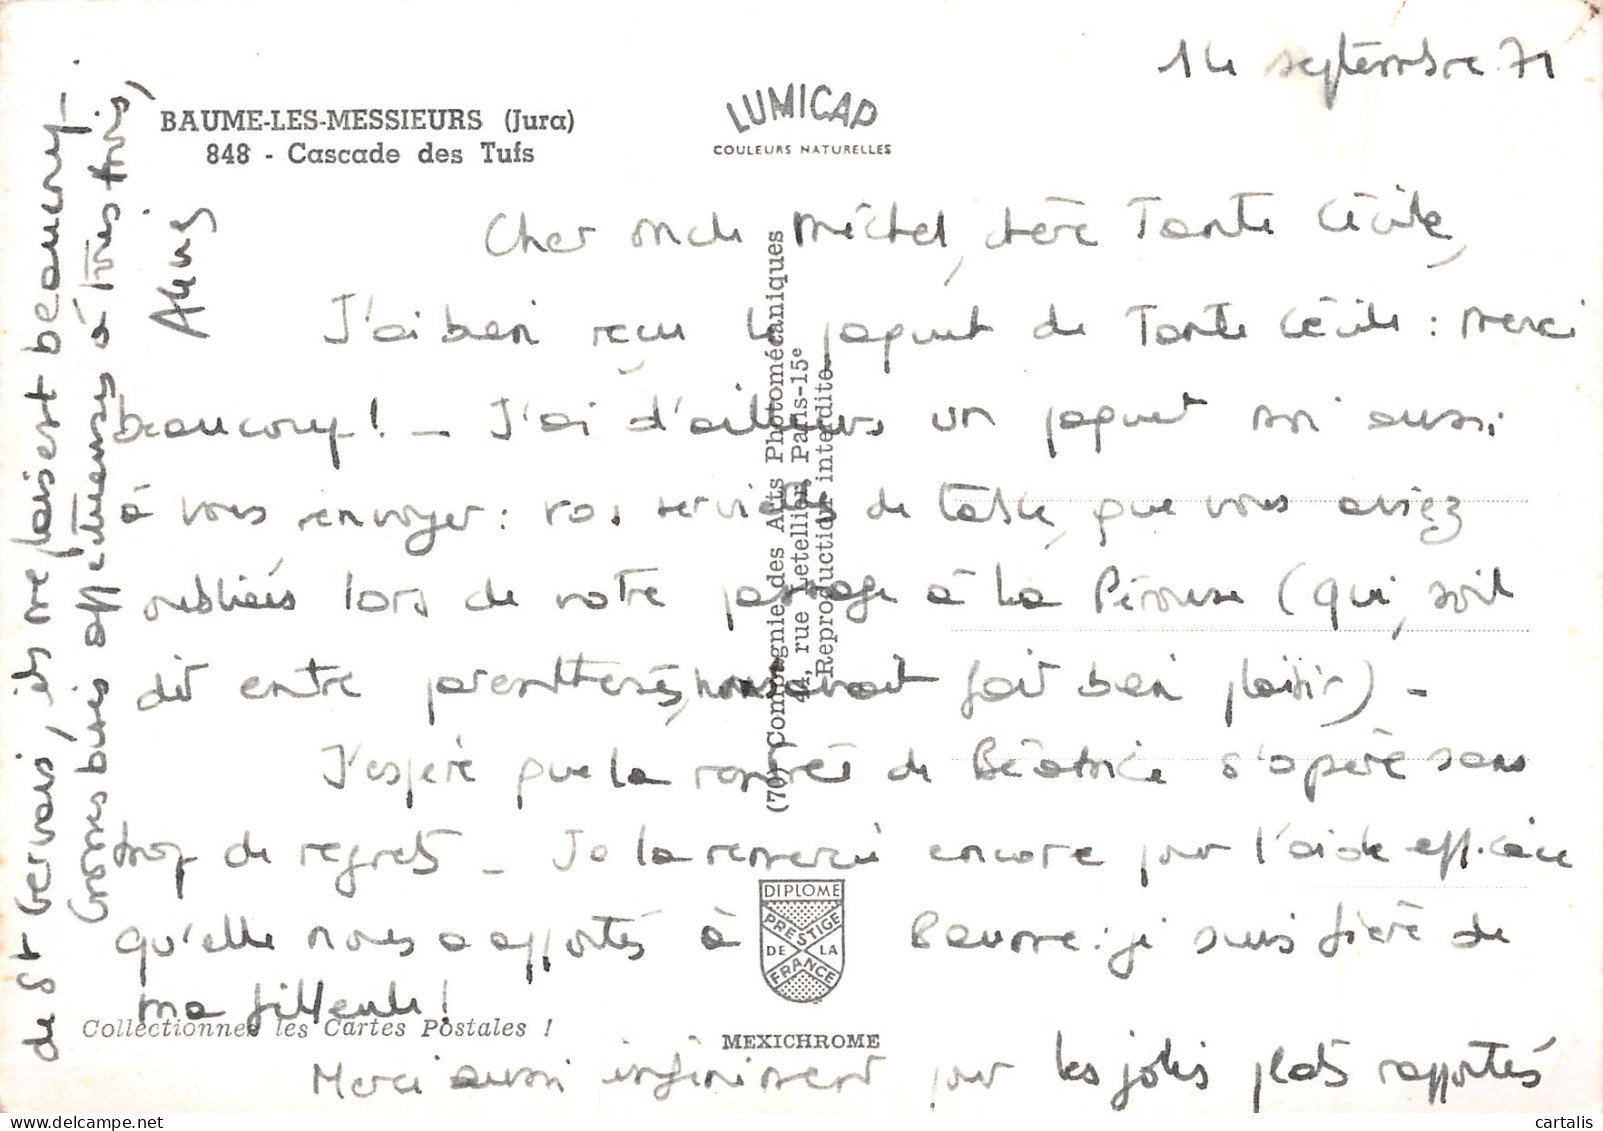 14 septembre 71
BAUME-LES-MESSIEURS (Jura)
848 - Cascade des Tufs
LUMICAP
COULEURS NATURELLES
Cher oncle Michel, chère Tante Cécile,
J'ai bien reçu le paquet de Tante Cécile : merci
beaucoup ! _ J'ai d'ailleurs un paquet moi aussi
à vous renvoyer : vos serviettes de table, que vous aviez
oubliées lors de votre passage à La Pérouse (qui, soit
dit entre parenthèses, nous avait fait bien plaisir) -
J'espère que la rentrée de Béatrice s'opère sans
trop de regrets _ Je la remercie encore pour l'aide efficace
qu'elle nous a apportés à Baume : je suis fière de
ma filleule !
Merci aussi infiniment pour les jolis plats rapportés
de St Gervais, ils me plaisent beaucoup -.
Grosses bises affectueuses à tous trois,
(70) Compagnie des Arts Photomécaniques
44, rue Letellier, Paris-15e
Reproduction interdite.
DIPLOME
PRESTIGE
DE LA
FRANCE
Collectionnez les Cartes Postales !
MEXICHROME
cartalis